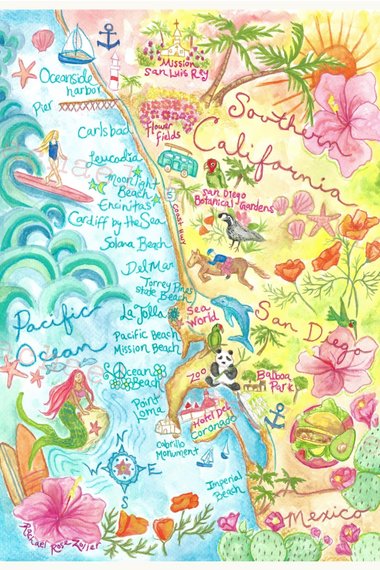 Oceanside
harbor
Mission
San Luis Rey
Pier
Southern
California
Carlsbad
Flower
fields
Leucadia
Moonlight
Beach
Encinitas
Cardiff by the Sea
San Diego
Botanical Gardens
Coast Hwy
Solana Beach
Del Mar
Torrey Pines
state Beach
La Jolla
Sea
World
San Diego
Pacific
Ocean
Pacific Beach
Mission Beach
Ocean
Beach
Zoo
Balboa
Park
Point
Loma
Hotel Del
Coronado
Cabrillo
Monument
N
W
E
S
Imperial
Beach
Mexico
Rachael Rose Zoller